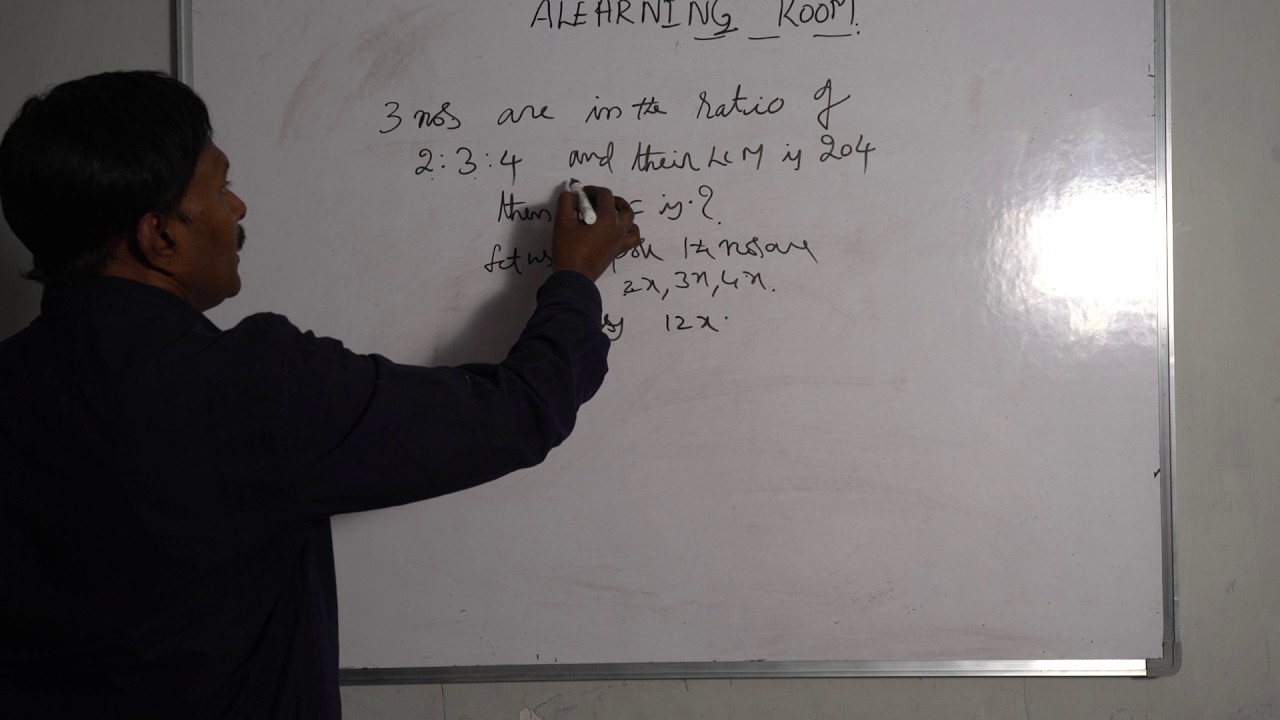 ALEARNING ROOM.
3 nos are in the ratio of
2:3:4 and their LCM is 204
then is.?
Let us the nos are
2x, 3x, 4x.
12x.